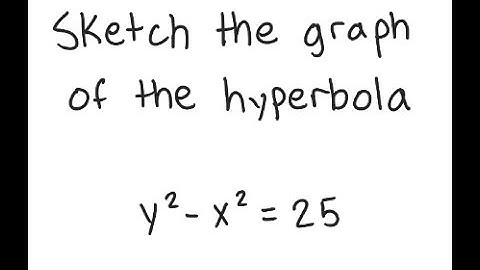 Sketch the graph
of the hyperbola
y² - x² = 25